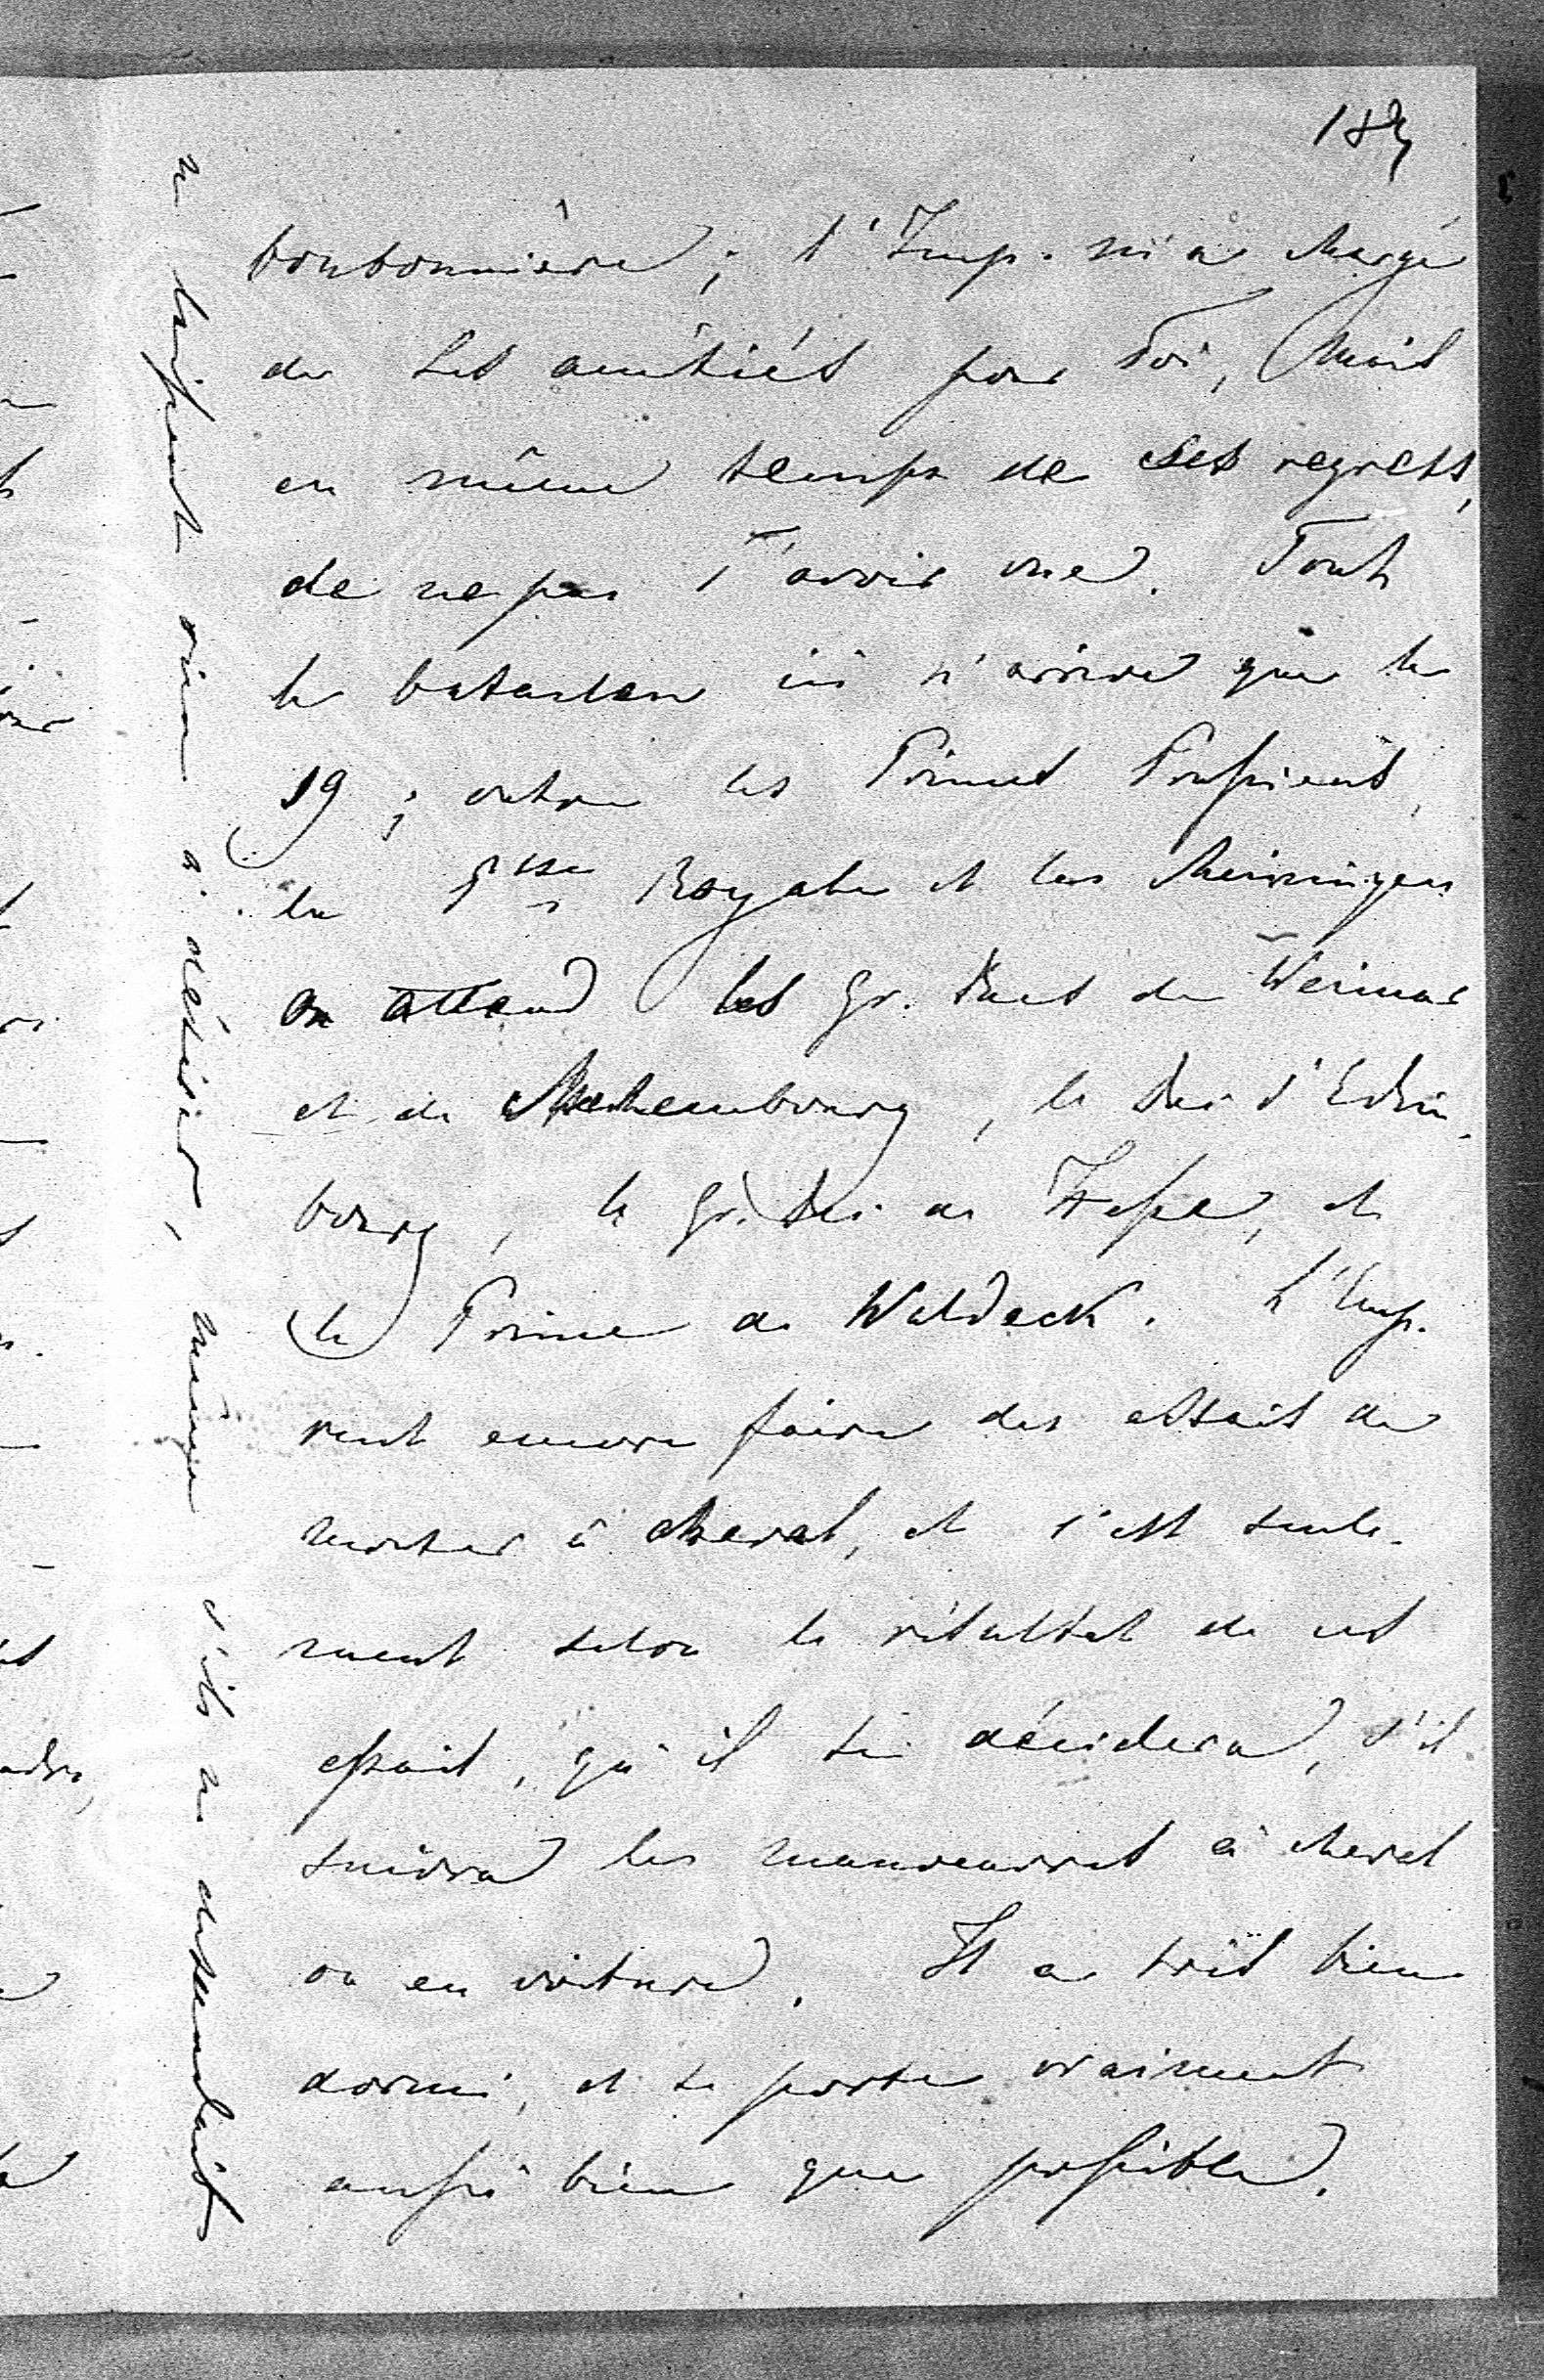 183
bonbonnière; l'Imp. m'a chargé
de Ses amitiés pour Toi, mais
en même temps de Ses regrets,
de ne pas T'avoir vue. Tout
le bataclan ici n'arrive que le
19; outre les Princes Prussiens,
la Psse Royale et les Meiningen
on attend les Gr. Ducs de Weimar
et de Mecklembourg, le Duc d'Edim-
bourg, le Gr. Duc de Hesse, et
le Prince de Waldeck. L'Emp.
veut encore faire des essais de
monter à cheval, et c'est seule-
ment selon le résultat de ces
essais, qu'il se décidera, s'il
suivra les manoeuvres à cheval
ou en voiture. Il a très bien
dormi, et se porte vraiment
aussi bien que possible.
ne laissent rien à désirer, même s'ils ne